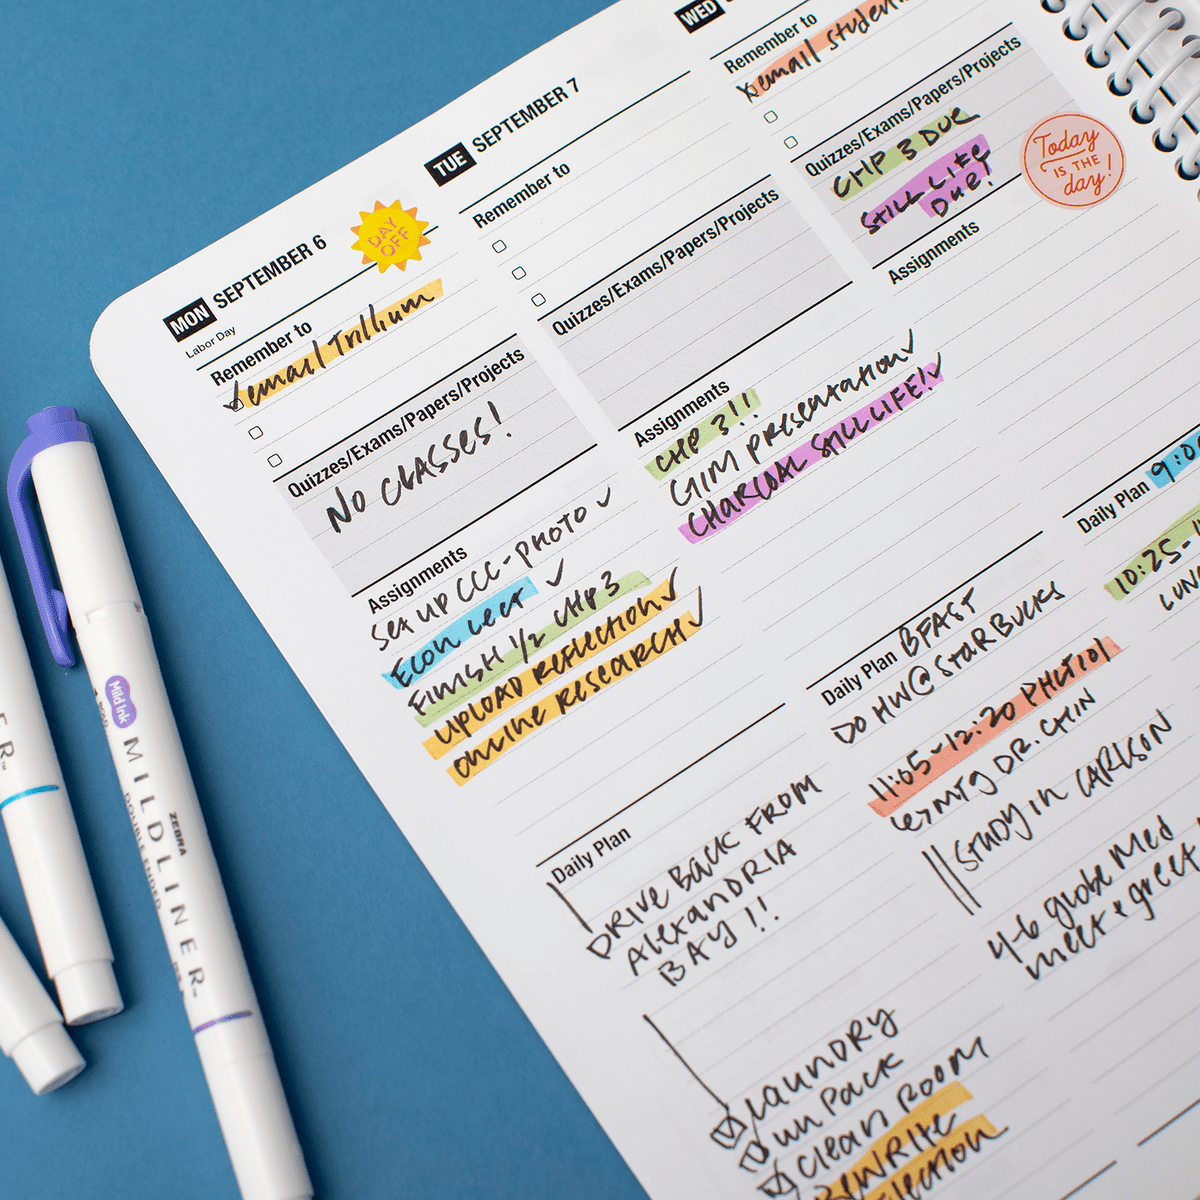 MON SEPTEMBER 6
Labor Day
DAY
OFF
Remember to
email Trillium
Quizzes/Exams/Papers/Projects
NO CLASSES!
Assignments
SET UP CCC-PHOTO
ECON LECT
FINISH 1/2 CHP 3
UPLOAD REFLECTION
ONLINE RESEARCH
Daily Plan
DRIVE BACK FROM
ALEXANDRIA
BAY!!
LAUNDRY
UNPACK
CLEAN ROOM
REWRITE
TUE SEPTEMBER 7
Remember to
Quizzes/Exams/Papers/Projects
Assignments
CHP 3!!
GIM PRESENTATION
CHARCOAL STILL LIFE!
Daily Plan BFAST
DO HW @ STARBUCKS
11:05-12:20 PHLT101
MTG DR. CHIN
STUDY IN CARLSON
4-6 globe Med
meet & greet
WED
Remember to
email
Quizzes/Exams/Papers/Projects
CHP 3 DUE
STILL LIFE
DUE!
Today
IS THE
day!
Assignments
Daily Plan
10:25-
Mild Ink
MILDLINER™
ZEBRA
DOUBLE ENDED